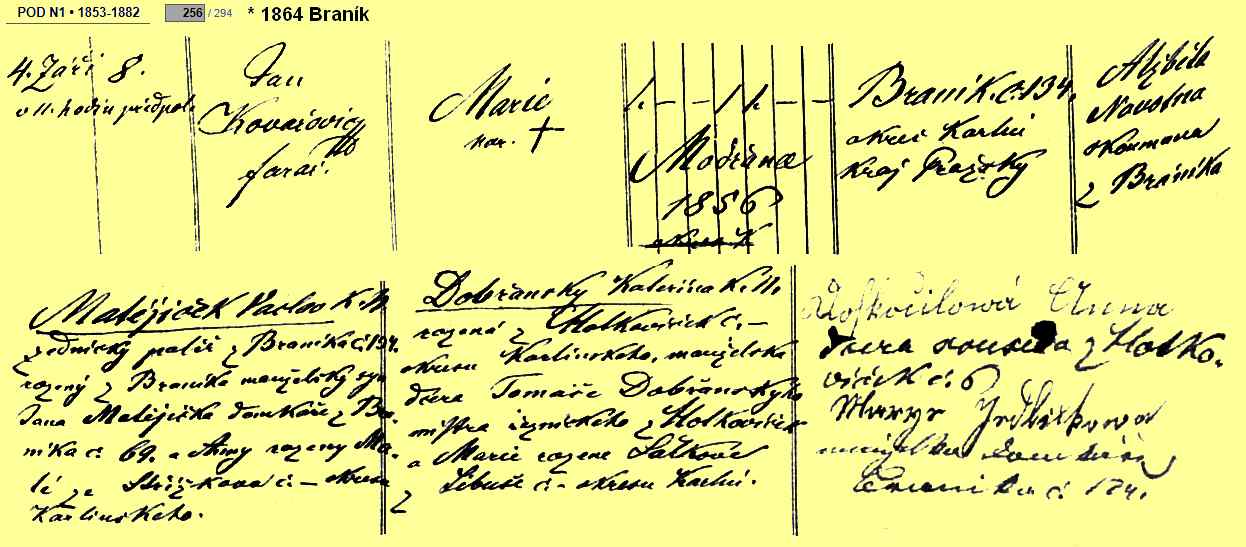 POD N1 • 1853-1882 256 / 294 * 1864 Braník
4. Září 8.
v 11. hodin předpol.
Jan
Kovařovic
farář.
Marie
nar. †
1. – – 1 1. – –
Modřana
1856
Braník. č. 134.
okres Karlín
kraj Pražský
Alžběta
Novotna
zkoumana
z Braníka
Matějiček Václav K. N.
zednický palíř z Braníka č. 134.
rozený z Braníka manželský syn
Jana Matějička domkaře z Bra-
níka č. 69. a Anny rozený Ma-
lé ze Střížkova č. – okresu
Karlinskeho.
Dobřansky Kateřina K. N.
rozená z Hotkoviček č. –
okresu Karlinskeho, manželska
dcera Tomaše Dobřanskýho
mistra řeznickeho z Hotkoviček
a Marie rozene Látkove
z Libuše č. – okresu Karlín.
Anna
dcera souseda z Hotko-
viček č. 6
Marye Jedličkowa
manželka domkáře
Branika č. 124.